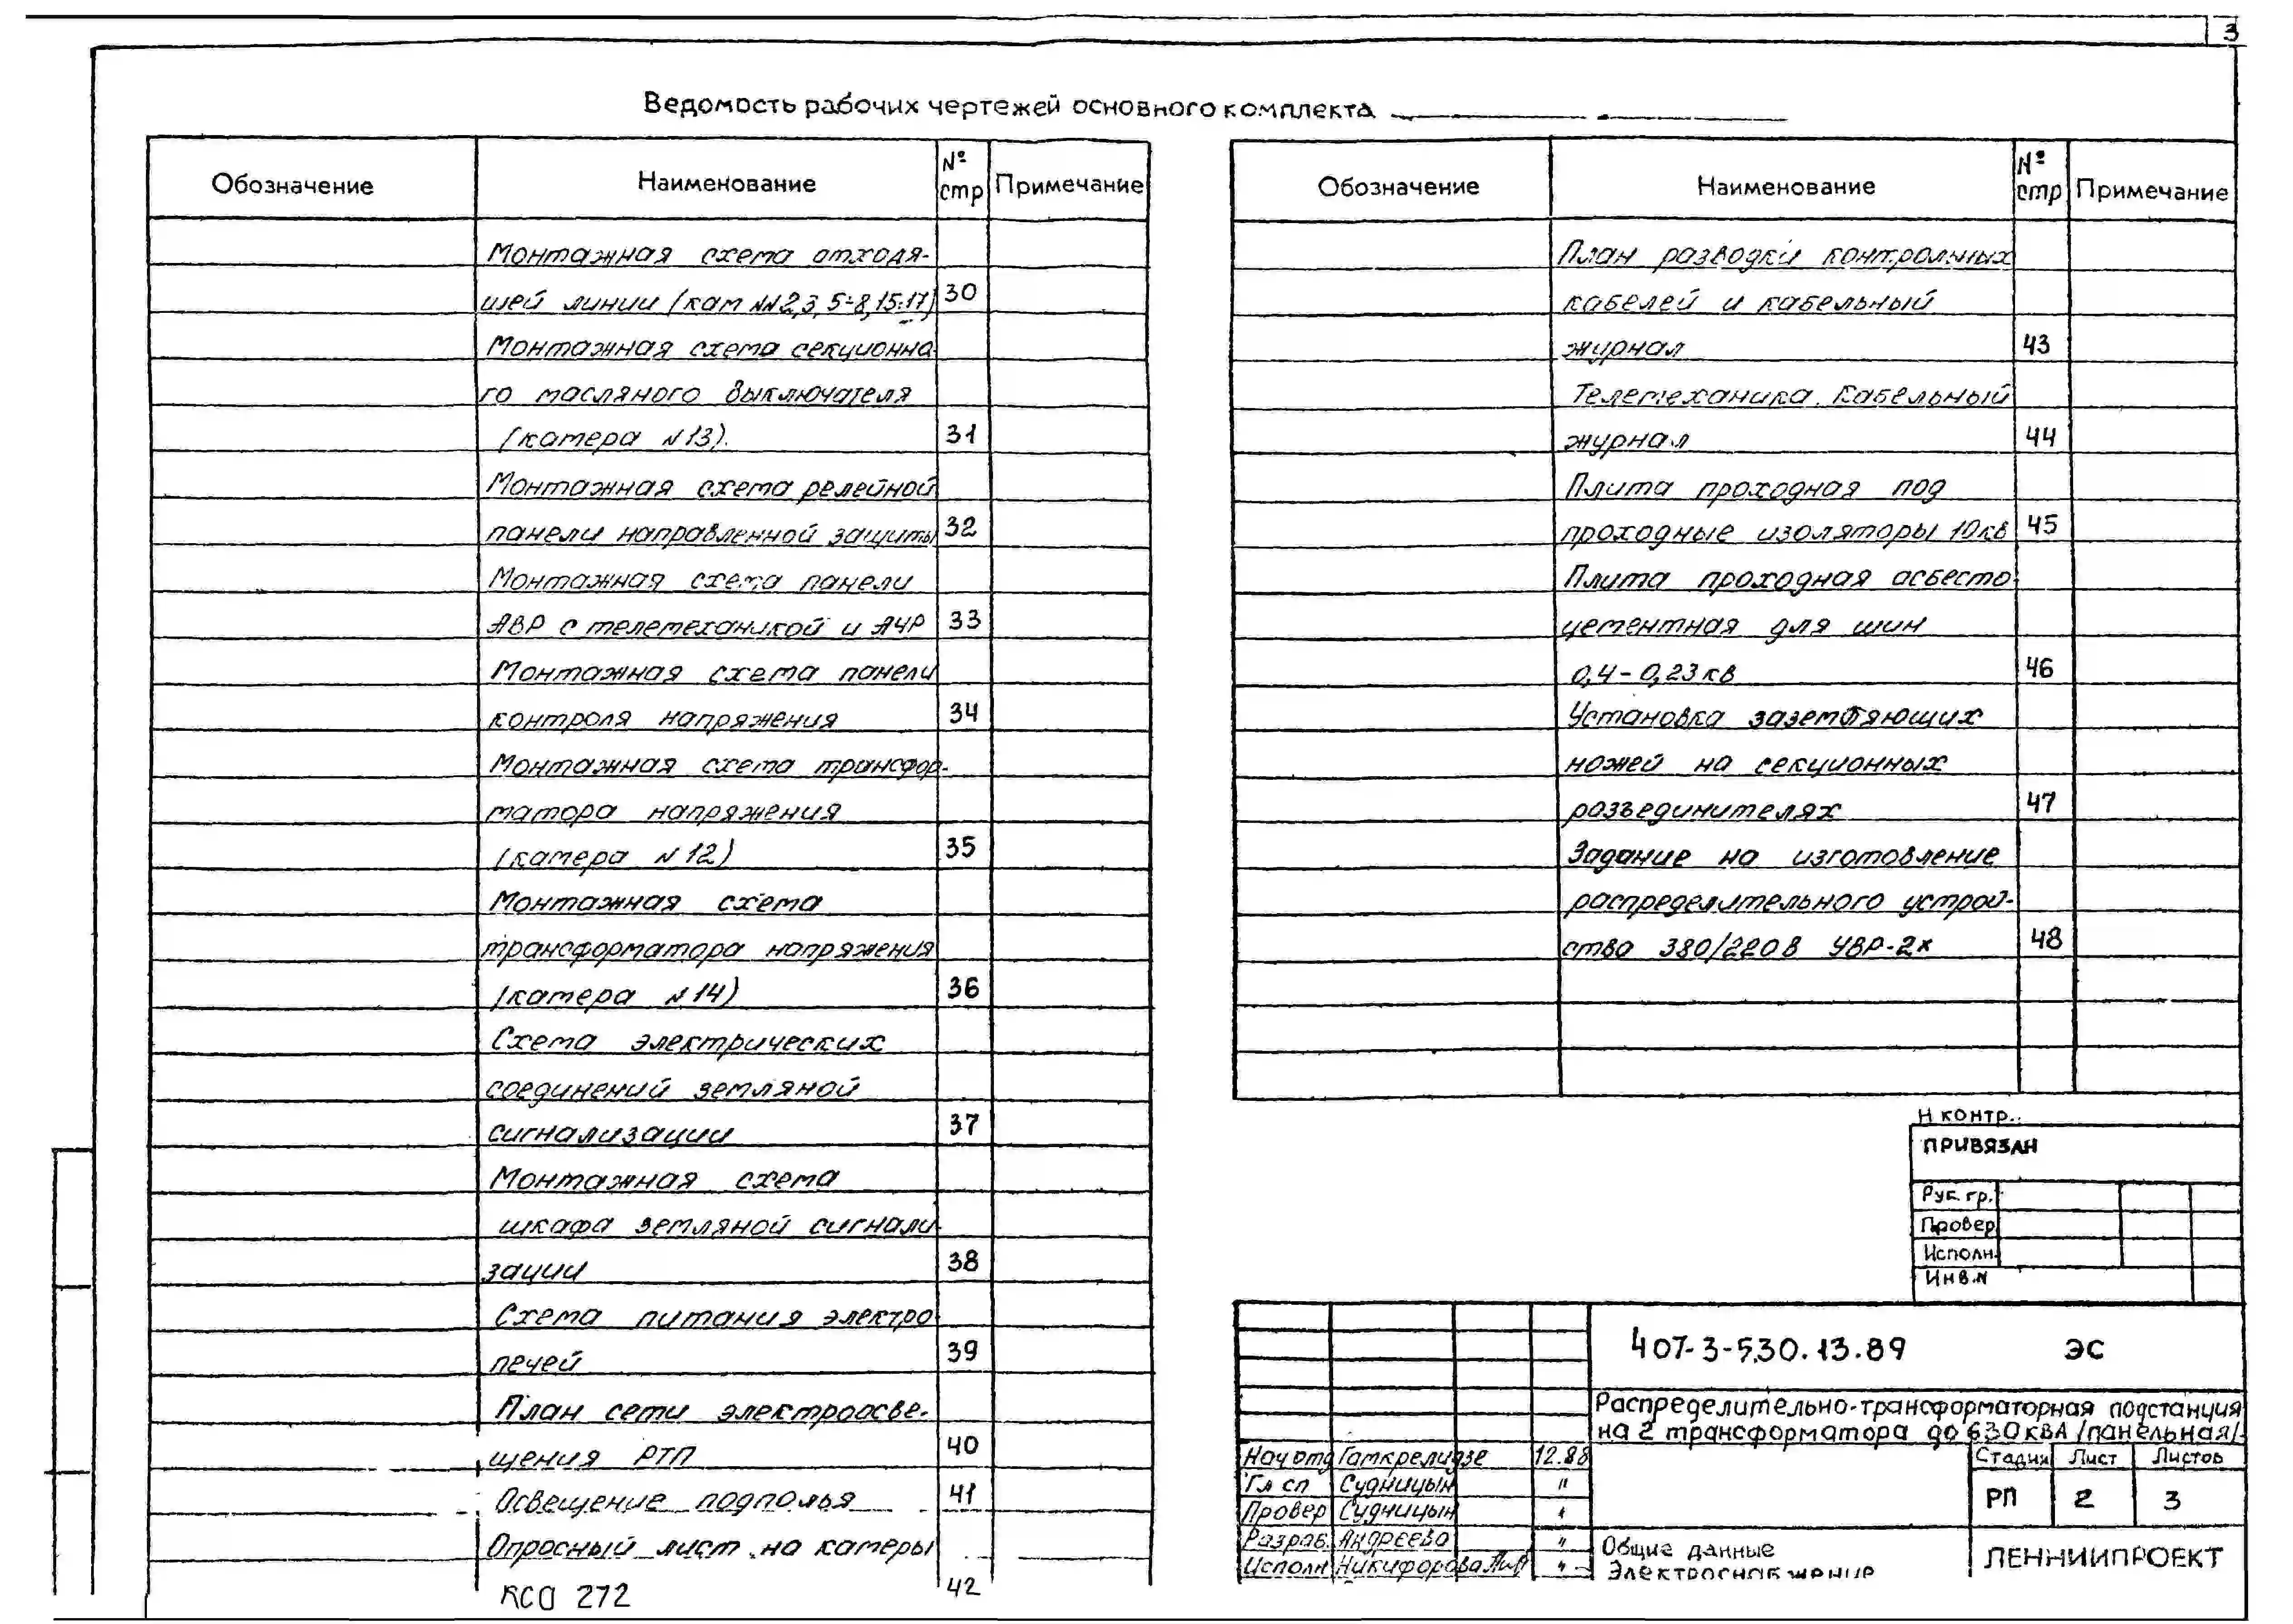 3
Ведомость рабочих чертежей основного комплекта
Обозначение Наименование № стр Примечание
Монтажная схема отходя-
щей линии (кам №№2,3, 5÷8,15÷17) 30
Монтажная схема секционно-
го масляного выключателя
(камера №13). 31
Монтажная схема релейной
панели направленной защиты 32
Монтажная схема панели
АВР с телемеханикой и АЧР 33
Монтажная схема панели
контроля напряжения 34
Монтажная схема трансфор-
матора напряжения
(камера №12) 35
Монтажная схема
трансформатора напряжения
(камера №14) 36
Схема электрических
соединений земляной
сигнализации 37
Монтажная схема
шкафа земляной сигнали-
зации 38
Схема питания электро-
печей 39
План сети электроосве-
щения РТП 40
Освещение подполья 41
Опросный лист на камеры
КСО 272 42
Обозначение Наименование № стр Примечание
План разводки контрольных
кабелей и кабельный
журнал 43
Телемеханика. Кабельный
журнал 44
Плита проходная под
проходные изоляторы 10кв 45
Плита проходная асбесто-
цементная для шин
0,4-0,23кв 46
Установка заземляющих
ножей на секционных
разъединителях 47
Задание на изготовление
распределительного устрой-
ства 380/220в УВР-2к 48
Н контр.
ПРИВЯЗАН
Рук. гр.
Провер
Исполн.
Инв.N
407-3-530.13.89 ЭС
Распределительно-трансформаторная подстанция
на 2 трансформатора до 630кВА /панельная/
Нач отд Гамкрелидзе 12.88
Гл сп Судницын "
Провер Судницын "
Разраб. Андреева "
Исполн Никифорова "
Стадия Лист Листов
РП 2 3
Общие данные
Электроснабжение
ЛЕННИИПРОЕКТ